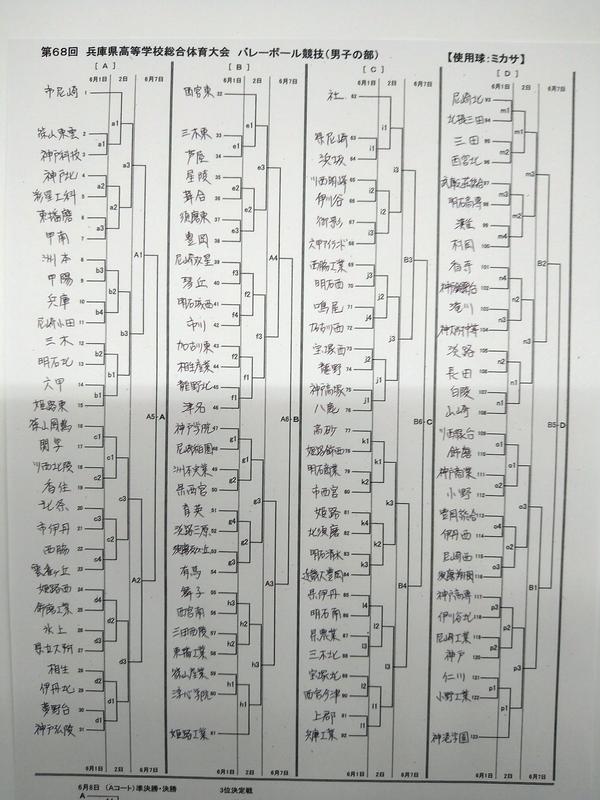 第68回 兵庫県高等学校総合体育大会 バレーボール競技(男子の部) 【使用球:ミカサ】
[ A ]
6月1日 2日 6月7日
市尼崎 1
篠山東雲 2
神戸科技 3
神戸北 4
彩星工科 5
東播磨 6
甲南 7
洲本 8
甲陽 9
兵庫 10
尼崎小田 11
三木 12
明石北 13
六甲 14
姫路東 15
篠山鳳鳴 16
関学 17
川西北陵 18
香住 19
北条 20
市伊丹 21
西脇 22
雲雀ヶ丘 23
姫路西 24
飾磨工業 25
氷上 26
県立大附 27
相生 28
伊丹北 29
夢野台 30
神戸弘陵 31
a1
a2
a3
b3
b2
b3
b2
b1
c1
c2
c3
c3
c4
d4
d3
d2
d3
d2
d1
A1
A2
A5-A
6月1日 2日 6月7日
[ B ]
6月1日 2日 6月7日
西宮東 32
三木東 33
芦屋 34
星陵 35
葺合 36
須磨東 37
豊岡 38
尼崎双星 39
琴丘 40
明石城西 41
市川 42
加古川東 43
相生産業 44
龍野北 45
津名 46
神戸学院 47
尼崎稲園 48
洲本実業 49
県西宮 50
育英 51
淡路三原 52
有馬 54
舞子 55
西宮南 56
三田西陵 57
東播工業 58
篠山産業 59
姫路工業 61
e1
e2
e3
e2
f3
f2
f3
f2
f1
g1
g2
g1
g4
g3
g2
h3
h2
h3
h2
h1
A4
A3
A6-B
6月1日 2日 6月7日
[ C ]
6月1日 2日 6月7日
社 62
県尼崎 63
浜坂 64
川西明峰 65
伊川谷 66
御影 67
六甲アイランド 68
西脇工業 69
明石西 70
鳴尾 71
加古川西 72
宝塚西 73
龍野 74
神戸高塚 75
八鹿 76
高砂 77
姫路飾西 78
明石商業 79
市西宮 80
姫路 81
北須磨 82
明石清水 83
近畿大豊岡 84
県伊丹 85
明石南 86
県農業 87
三木北 88
宝塚北 89
西宮今津 90
上郡 91
兵庫工業 92
i1
i2
i3
i2
j3
j2
j3
j1
k1
k2
k1
k3
k4
k3
k2
l4
l3
l1
l3
l2
l1
B3
B4
B6-C
6月1日 2日 6月7日
[ D ]
6月1日 2日 6月7日
尼崎北 93
北摂三田 94
三田 95
西宮北 96
武庫荘総合 97
明石高専 98
灘 99
村岡 100
香寺 101
神戸鈴蘭台 102
滝川 103
淡路 105
長田 106
白陵 107
山崎 108
飾磨 110
神戸商業 111
小野 112
豊岡総合 113
伊丹西 114
尼崎西 115
須磨翔風 116
神戸高専 117
伊川谷北 118
尼崎工業 119
神戸 120
仁川 121
小野工業 122
神港学園 123
m1
m2
m3
m3
m4
m2
n4
n3
n2
n3
n2
n1
o1
o2
o1
o3
o4
o3
o2
p3
p2
p3
p2
p1
B2
B1
B5-D
6月1日 2日 6月7日
6月8日 (Aコート)準決勝・決勝 3位決定戦
A